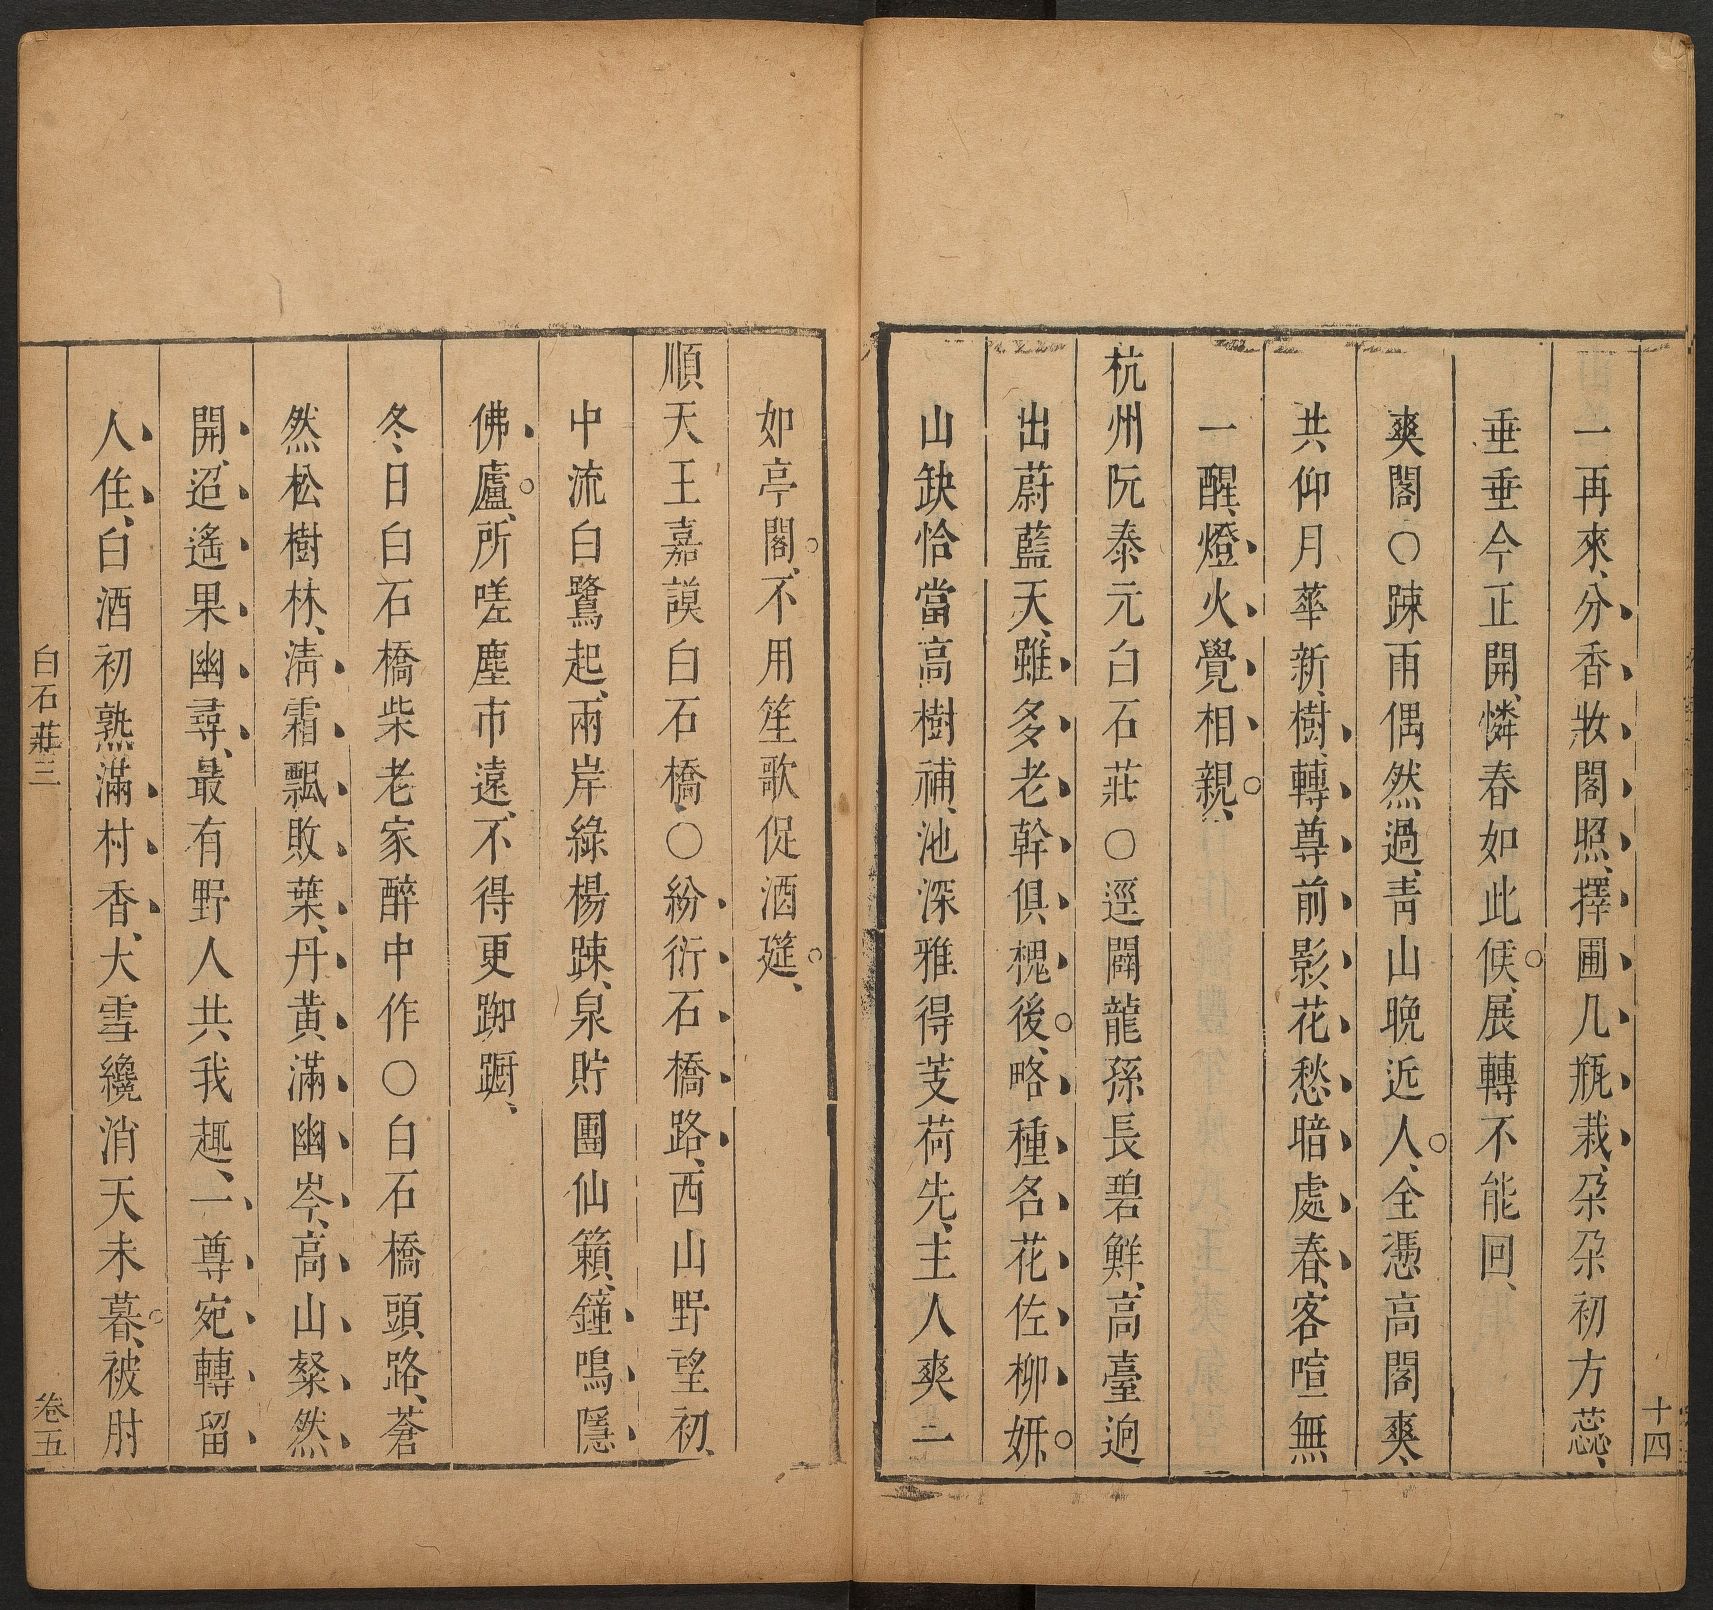 十四
一再來、分香妝閣照、擇圃几瓶栽、朶朶初方蕊、
垂垂今正開、憐春如此候、展轉不能回、
爽閣○踈雨偶然過、靑山晚近人、全憑高閣爽、
共仰月華新、樹轉尊前影、花愁暗處春、客喧無
一醒、燈火覺相親、
杭州阮泰元白石莊○逕闢龍孫長碧鮮、高臺逈
出蔚藍天、雖多老幹俱槐後、略種名花佐柳妍、
山缺恰當高樹補、池深雅得芰荷先、主人爽二
如亭閣、不用笙歌促酒筵、
順天王嘉謨白石橋、○紛衍石橋路、西山野望初、
中流白鷺起、兩岸綠楊踈、泉貯團仙籟、鐘鳴隱
佛廬、所嗟塵市遠、不得更踟蹰、
冬日白石橋柴老家醉中作○白石橋頭路、蒼
然松樹林、淸霜飄敗葉、丹黃滿幽岑、高山粲然
開、迢遙果幽尋、最有野人共我趣、一尊宛轉留
人住、白酒初熟滿村香、大雪纔消天未暮、被肘
白石莊三
卷五